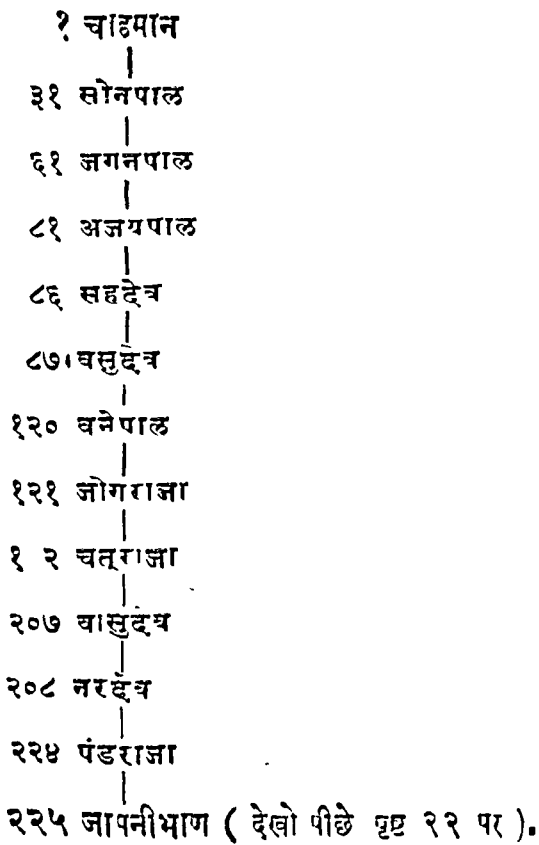 १ चाहमान
३१ सोनपाल
६१ जगनपाल
८१ अजयपाल
८६ सहदेव
८७ वसुदेव
१२० वनेपाल
१२१ जोगराजा
१ २ चत्रराजा
२०७ वासुदेव
२०८ नरदेव
२२४ पंडराजा
२२५ जापनीभाण ( देखो पीछे पृष्ट २२ पर ).